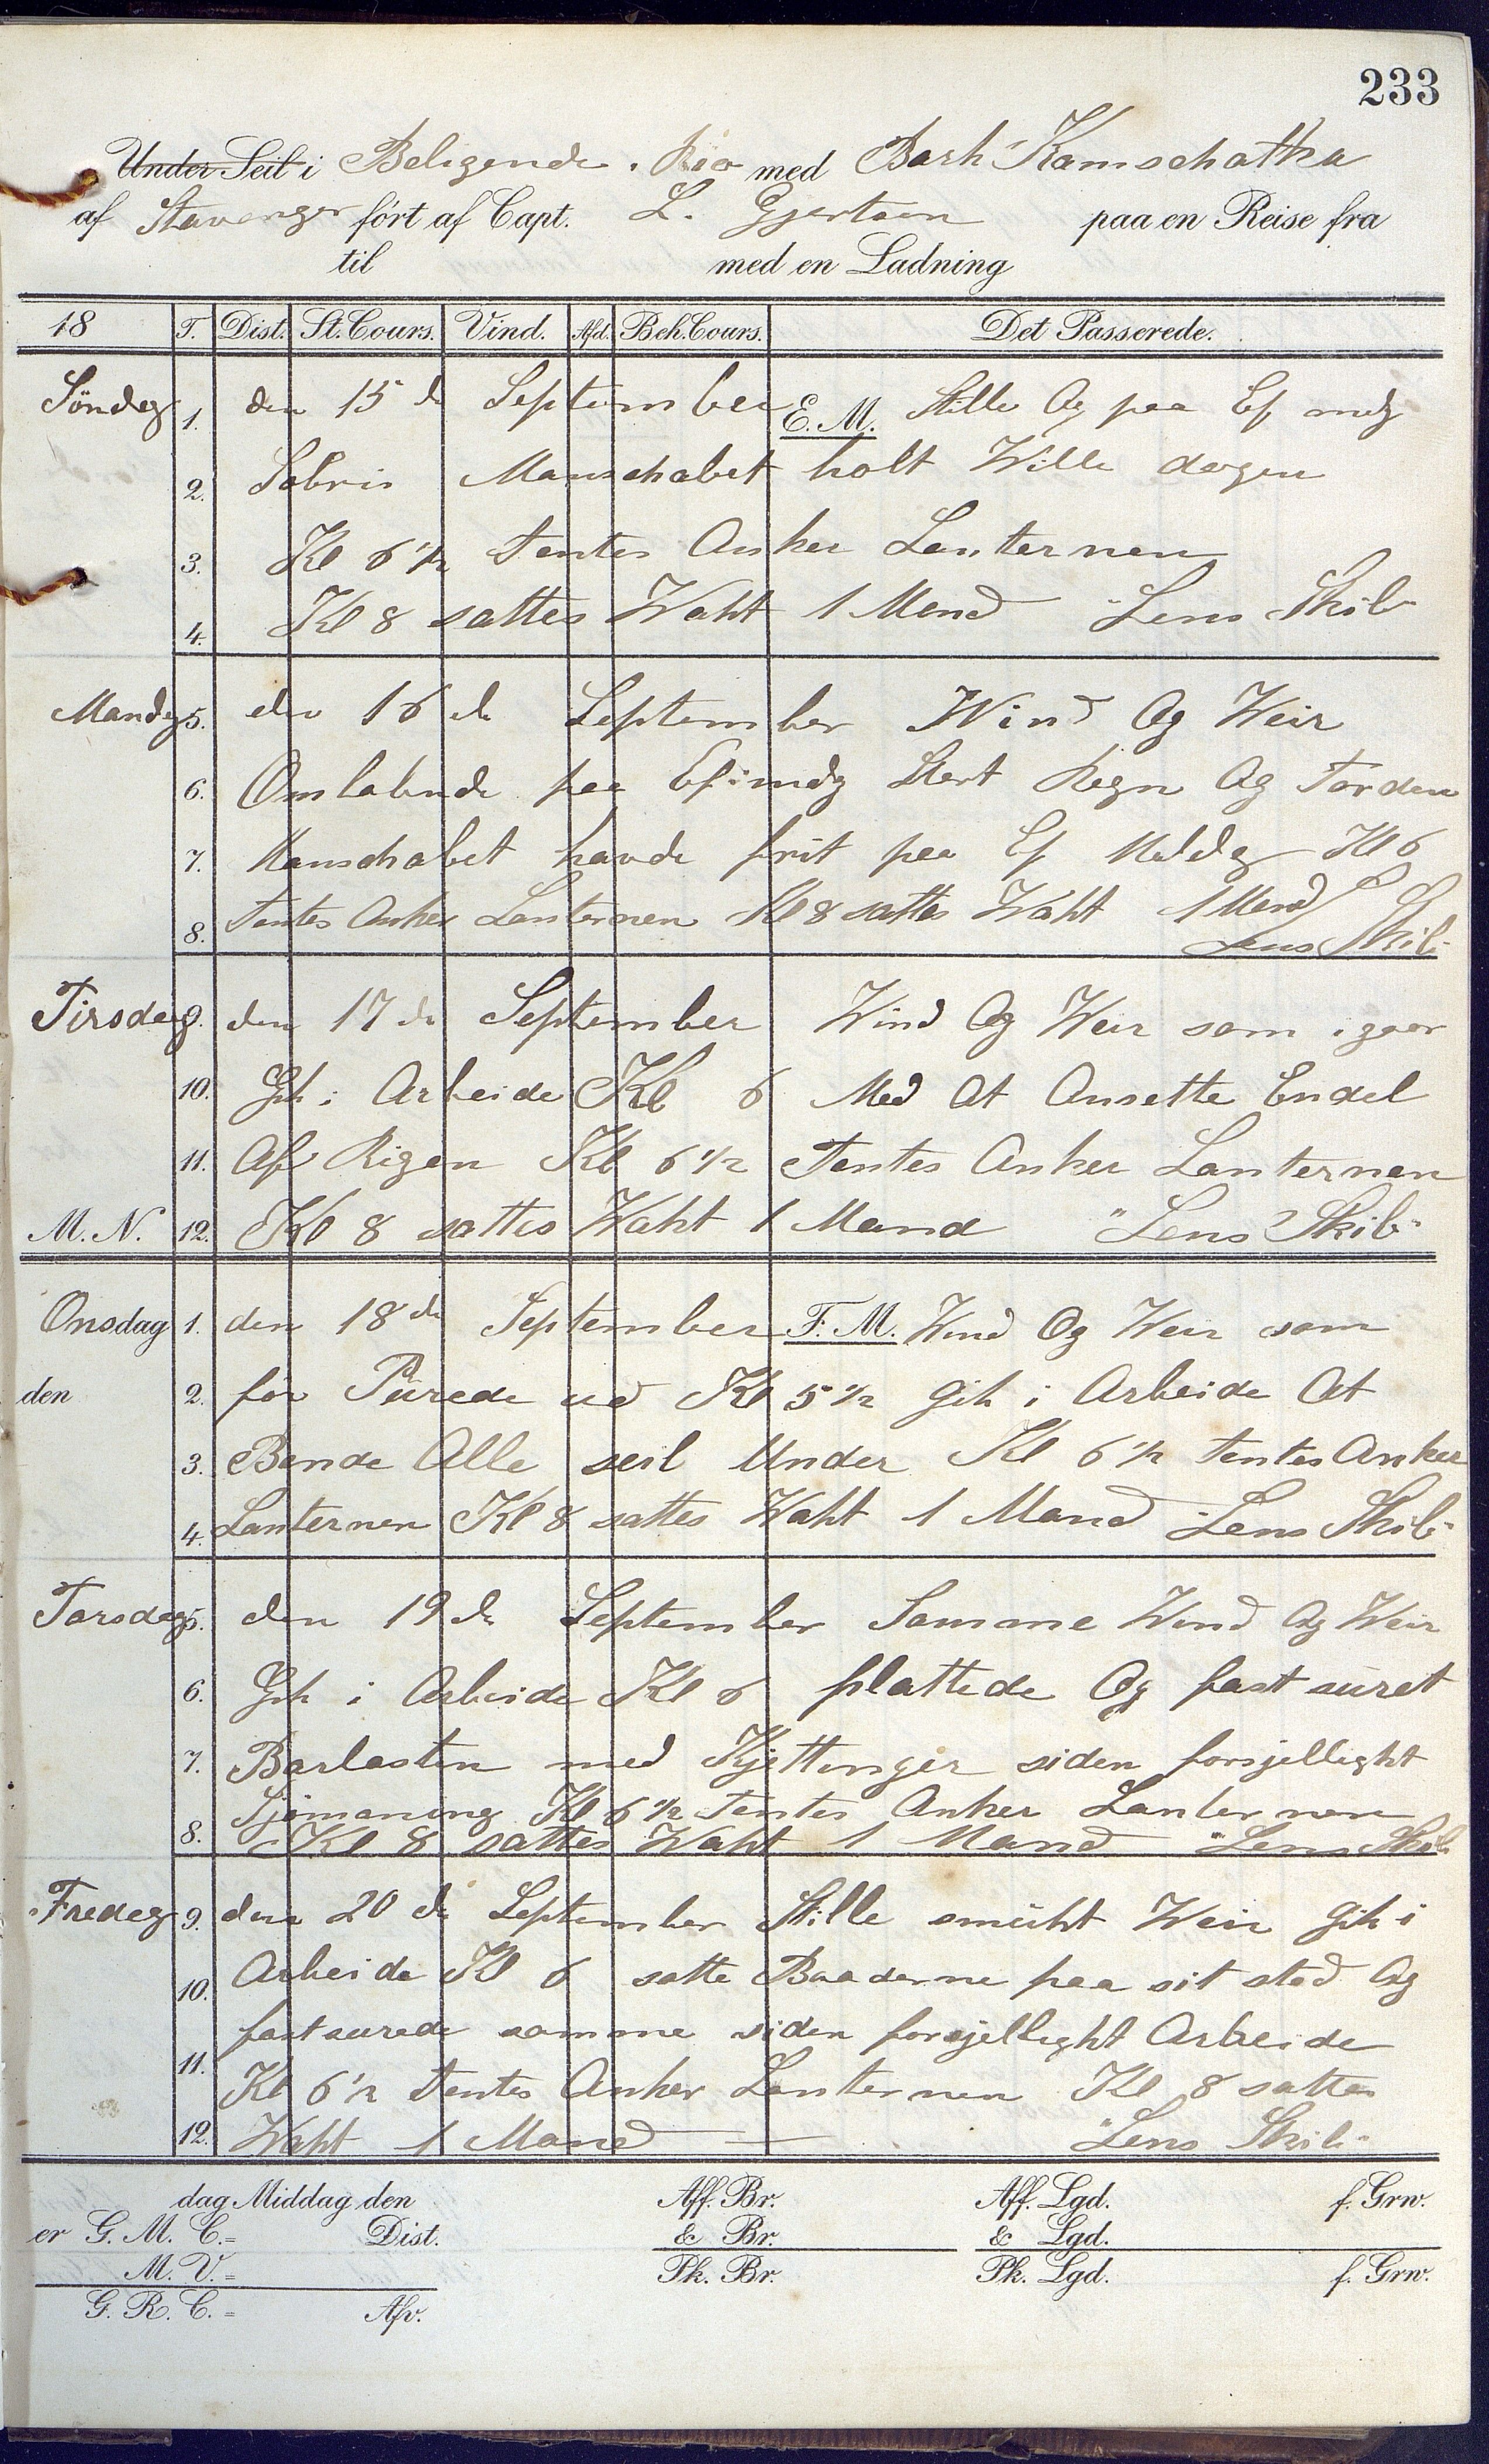 233
Under Seil i Beligende i Rio med Bark Kamschatka
af Stavanger ført af Capt. L. Gjertsen paa en Reise fra
til med en Ladning
18 T. Dist. St. Cours. Vind. Afd. Beh. Cours. Det Passerede.
Søndag 1. den 15 de September E. M. Stille Og paa Ef mdg
2. Sobris Manschabet holt Wille dagen
3. Kl 6 1/2 Tentes Anker Lanternen
4. Kl 8 sattes Waht 1 Mand "Lens Skib"
Mandg 5. den 16 de September Wind Og Weir
6. Omlabende paa Ef:mdg Stert Regn Og Torden
7. Manschabet havde frit paa Ef Middag Kl 6
8. Tentes Anker Lanternen Kl 8 sattes Waht 1 Mand
Lens Skib"
Tirsdag 9. den 17 de September Wind Og Weir som igaar
10. Gik i Arbeide Kl 6 Med At Ansette Endel
11. Af Rigen Kl 6 1/2 Tentes Anker Lanternen
M. N. 12. Kl 8 sattes Waht 1 Mand "Lens Skib"
Onsdag 1. den 18 de September F. M. Wind Og Weir som
den 2. før Purede ud Kl 5 1/2 Gik i Arbeide At
3. Bende Alle seil Under Kl 6 1/2 Tentes Anker
4. Lanternen Kl 8 sattes Waht 1 Mand Lens Skib"
Torsdag 5. den 19 de September Samme Wind Og Weir
6. Gik i Arbeide Kl 6 plattede Og fast suret
7. Barlasten med Kjettinger siden forsjellight
Sjømaning Kl 6 1/2 Tentes Anker Lanternen
8. Kl 8 sattes Waht 1 Mand "Lens Skib
Fredag 9. den 20 de September Stille smukt Weir Gik i
10. Arbeide Kl 6 satte Baaderne paa sit sted Og
fastsurede samme siden forsjellight Arbeide
11. Kl 6 1/2 Tentes Anker Lanternen Kl 8 sattes
12. Waht 1 Mand "Lens Skib"
dag Middag den Aff. Br. Aff. Lgd. f. Grw.
er G. M. C.= Dist. & Br. & Lgd.
M. V.= Pk. Br. Pk. Lgd. f. Grw.
G. R. C.= Afv.